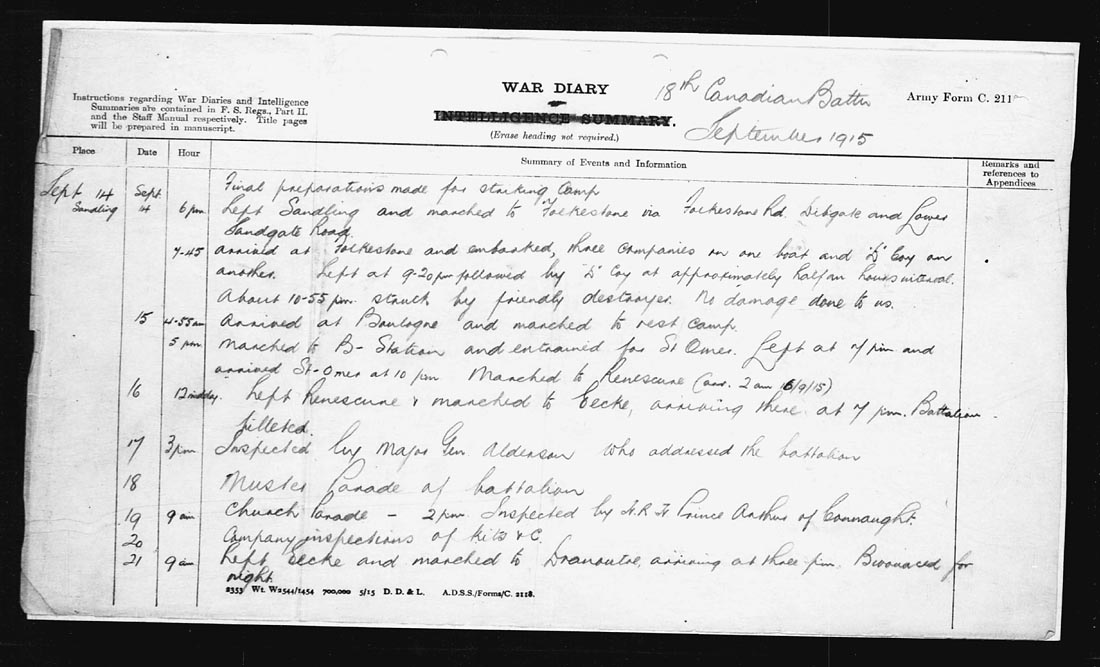 Instructions regarding War Diaries and Intelligence
Summaries are contained in F. S. Regs., Part II.
and the Staff Manual respectively. Title pages
will be prepared in manuscript.
WAR DIARY
or
INTELLIGENCE SUMMARY.
(Erase heading not required.)
18th Canadian Battn
September 1915
Army Form C. 211
Place Date Hour Summary of Events and Information Remarks and references to Appendices
Sept 14 Sept. Final preparations made for striking Camp
Sandling 14 6 pm Left Sandling and marched to Folkestone via Folkestone Rd. Dibgate and Lower
Sandgate Road.
7-45 arrived at Folkestone and embarked, three companies on one boat and "D" Coy on
another. Left at 9-20 pm followed by "D" Coy at approximately half an hours interval.
About 10-55 pm. struck by friendly destroyer. No damage done to us.
15 4-55 am Arrived at Boulogne and marched to rest camp.
5 pm marched to B- Station and entrained for St Omer. Left at 7 pm and
arrived St-Omer at 10 pm Marched to Renescure (arr. 2 am 16/9/15)
16 12 midday. Left Renescure & marched to Eecke, arriving there at 7 pm. Battalion
billeted.
17 3 pm Inspected by Major Gen Alderson who addressed the battalion
18 Muster Parade of battalion
19 9 am Church Parade - 2 pm. Inspected by H.R.H Prince Arthur of Connaught.
20 Company inspections of kits & C.
21 9 am Left Eecke and marched to Dranoutre, arriving at three pm. Bivouaced for
night.
2353 Wt. W2544/1454 700,000 5/15 D. D. & L. A.D.S.S./Forms/C. 2118.